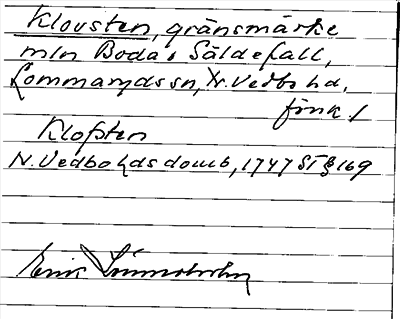 Klovsten, gränsmärke
mln Boda o Säldefall,
Lommarydssn, N. Vedbo hd,
fmk /
Klofsten
N. Vedbo hds domb, 1747 ST § 169
Erik